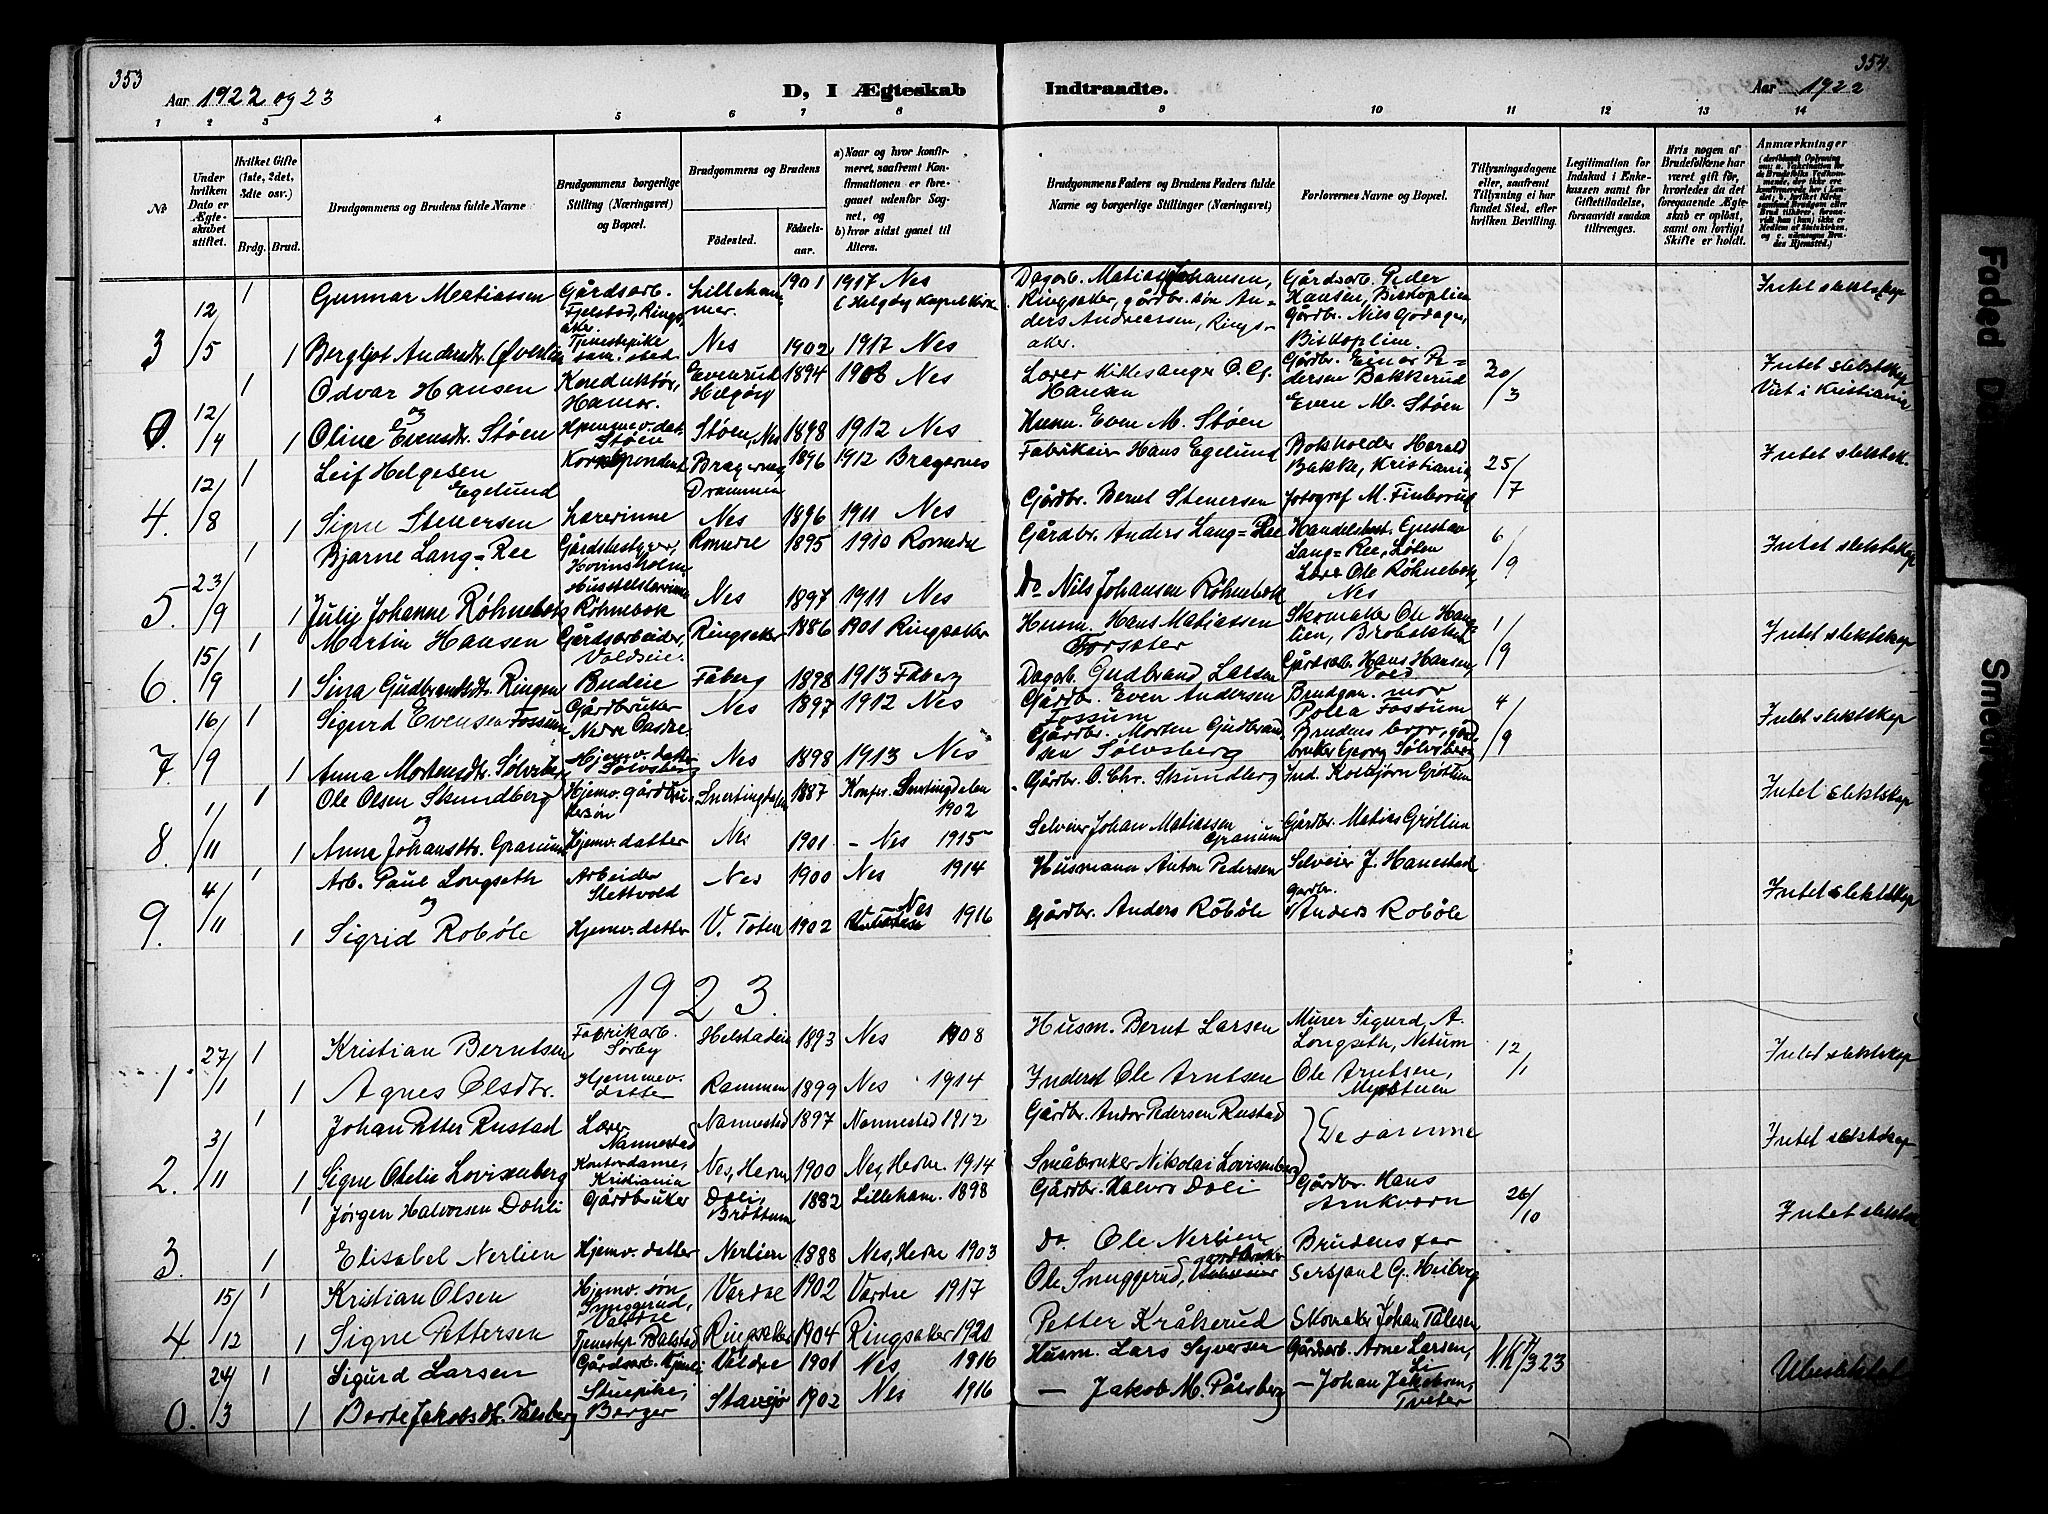 353
354
Aar 1922 og 23
D, I Ægteskab
Indtraadte.
Aar 1922
1 2 3 4 5 6 7 8 9 10 11 12 13 14
No.
Under hvilken Dato er Ægteskabet stiftet.
Hvilket Gifte (1ste, 2det, 3dte osv.)
Brdg. Brud.
Brudgommens og Brudens fulde Navne
Brudgommens borgerlige Stilling (Næringsvei) og Bopæl.
Brudgommens og Brudens
Fødested.
Fødsels-aar.
a) Naar og hvor konfirmeret, saafremt Konfirmationen er foregaaet udenfor Sognet, og
b) hvor sidst gaaet til Alters.
Brudgommens Faders og Brudens Faders fulde Navne og borgerlige Stillinger (Næringsvei)
Forlovernes Navne og Bopæl.
Tillysningsdagene eller, saafremt Tillysning ei har fundet Sted, efter hvilken Bevilling.
Legitimation for Indskud i Enkekassen samt for Giftetilladelse, forsaavidt saadan tiltrænges.
Hvis nogen af Brudefolkene har været gift før, hvorledes da det foregaaende Ægteskab er opløst, samt om lovligt Skifte er holdt.
Anmærkninger
12/5 1 Gunnar Matiassen Gårdsarb. Fjelstad, Ringsaker. Lillehammer. 1901 1917 Nes (Helgøy Kapel Kirk Dagarb. Matias Johansen, Ringsaker, gårdbr. søn Gårdsarb. Peder Hansen, Biskoplien Intet slektskap
3 1 Bergljot Andersdtr. Øverlien Tjenestepike sam. sted Nes 1902 1917 Nes Anders Andreassen, Ringsaker. Gårdbr. Nils Godager, Biskoplien.
12/4 1 Odvar Hansen Konduktør, Hamar. Evenrud Helgøy 1894 1908 Nes Lærer Kirkesanger O. G. Hansen Gårdbr. Einar Pedersen Bakkerud 20/3 Intet slektskap Viet i Kristiania
0. 1 og Oline Evensdtr. Støen Hjemmev. dat. Støen Støen, Nes 1898 1912 Nes Husm. Even M. Støen Even M. Støen
12/8 1 Leif Helgesen Egelund Korrespondent Bragernes Drammen 1896 1912 Bragernes Fabrikeier Hans Egelund Bokholder Harald Bakke, Kristiania 25/7 Intet slektsk.
4. 1 Signe Stenersen Lærerinne Nes 1896 1911 Nes Gårdbr. Bernt Stenersen fotograf M. Finborud
23/9 1 Bjarne Lang-Ree Gårdsbestyrer, Hovinsholm Romedal 1895 1910 Romedal Gårdbr. Anders Lang-Ree Handelsbest. Gustav Lang-Ree, Løten 6/9 Intet slektskap
5. 1 Julie Johanne Røhnebæk Røhnebæk Nes 1897 1911 Nes Do Nils Johansen Røhnebæk Lærer Ole Røhnebæk, Nes
15/9 1 Martin Hansen Gårdsarbeider, Voldseie. Ringsaker 1886 1901 Ringsaker Husm. Hans Matiassen Torsæter Skomaker Ole Hanslien, Brobakken 1/9 Intet slektskap
6. 1 Sina Gudbrandsdtr. Ringen Budeie Fåberg 1898 1913 Fåberg Dagarb. Gudbrand Larsen Gårdsarb. Hans Hansen, Vold
16/9 1 Sigurd Evensen Fossum Gårdbruker Nedre Nes 1897 1912 Nes Gårdbr. Even Andersen Fossum Brudgom. mor Polla Fossum 4/9 Intet slektskap
7. 1 Anna Mortensdtr. Sølvsberg Hjemv. datter Sølvsberg Nes 1898 1913 Nes Gårdbr. Morten Gudbrandsen Sølvsberg Brudens bror, gårdbruker Georg Sølvsberg
1/11 1 Ole Olsen Skundberg Hjemv. gårdbrukersøn Snertingdalen 1887 Konfir. Snertingdalen 1902 Gårdbr. O. Chr. Skundberg Ind. Kolbjørn Grøtlien Intet slektskap
8. 1 og Anna Johansdtr. Granum Hjemv. datter Nes 1901 - Nes 1915 Selveier Johan Matiassen Granum Gårdbr. Matias Grøtlien
4/11 1 Arb. Paul Longseth Arbeider Slettvold Nes 1900 Nes 1914 Husmann Anton Pedersen Selveier J. Hanestad Intet slektskap
9. 1 og Sigrid Robøle Hjemv. datter V. Toten 1902 Nes 1916 Gårdbr. Anders Robøle gardbr. Anders Robøle
1923.
27/1 1 Kristian Berntsen Fabrikarb. Sørby Helstadeie 1893 Nes 1908 Husm. Bernt Larsen Murer Sigurd A. Longseth, Netum 12/1 Intet slektskap
1 1 Agnes Olsdtr. Hjemmev. datter Rammen 1899 Nes 1914 Inderst Ole Arntsen Ole Arntsen,
3/11 1 Johan Petter Rustad Lærer Nannestad Nannestad 1897 Nannestad 1912 Gårdbr. Andor Pedersen Rustad } De samme Intet slektskap
2. 1 Signe Otelie Lovisenberg Kontordame, Kristiania Nes, Hedm 1900 Nes, Hedm. 1914 Småbruker Nikolai Lovisenberg
1 Jørgen Halvorsen Dohli Gårdbruker Doli, Brøttum 1882 Lilleham. 1898 Gårdbr. Halvor Doli Gårdbr. Hans Arnkværn 26/10 Intet slektsk
3. 1 Elisabet Nerlien Hjemv. datter Nerlien 1888 Nes, Hedm. 1903 Do. Ole Nerlien Brudens far
15/12 1 Kristian Olsen Hjemv. søn Snuggerud, Vardal Vardal 1902 Vardal 1917 Ole Snuggerud, gårdbruker Sersjant G. Heiberg
4 1 Signe Pettersen Tjenestep. Balstad Ringsaker 1904 Ringsaker 1920 Petter Kråkerud Skomaker Johan Pålesen
24/3 1 Sigurd Larsen Gårdsarb. Veldre 1901 Nes 1916 Husm. Lars Syversen Gårdsarb. Arne Larsen, Li 7/3 23 Ubeslektet
0. 1 Borte Jakobsdtr. Pålsberg Stuepike, Berger Stavsjø 1902 Nes 1916 — Jakob M. Pålsberg — Johan Jakobsen, Tveter
Faded D
Smear